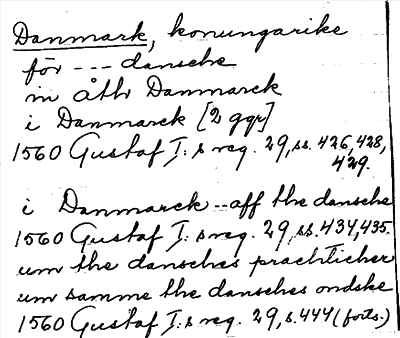 Danmark, konungarike
för --- dansche
in åthr Danmarck
i Danmarck [2 ggr]
1560 Gustaf I:s reg. 29, ss. 426, 428,
429.
i Danmarck -- aff the dansche
1560 Gustaf I:s reg. 29, ss. 434, 435.
um the dansches prachticher
um samme the dansches ondske
1560 Gustaf I:s reg. 29, s. 444 (forts.)